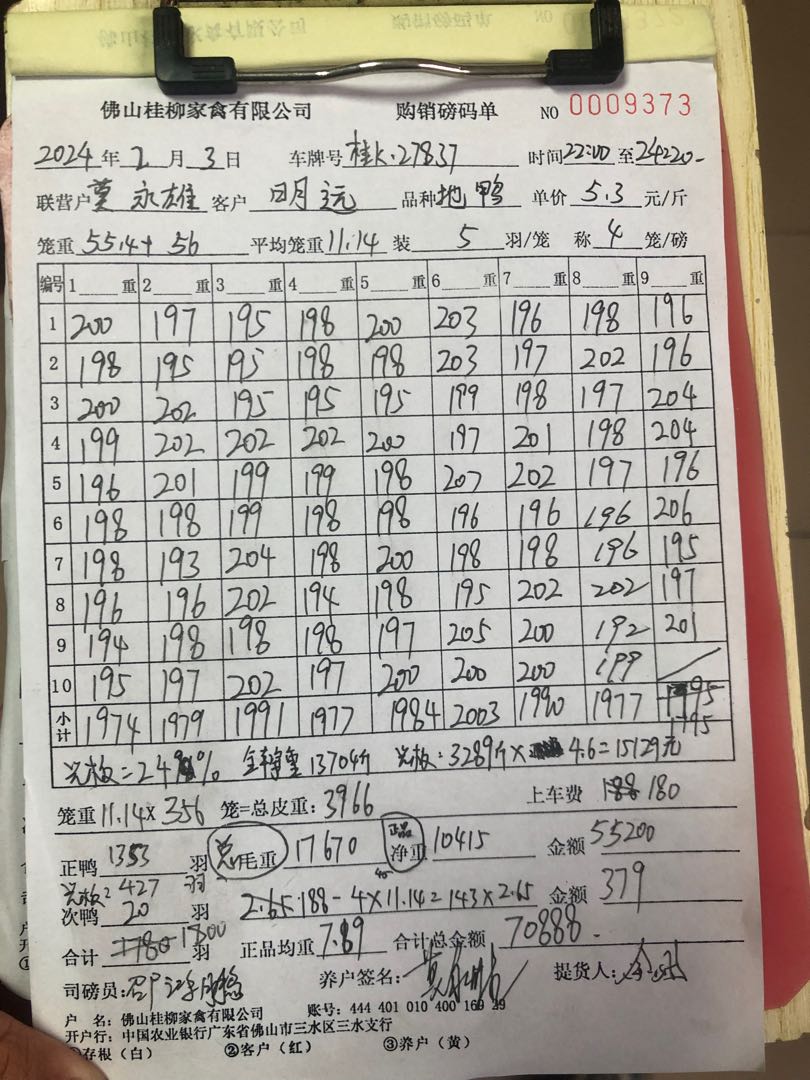 佛山桂柳家禽有限公司 购销磅码单 NO 0009373
2024年2月3日 车牌号桂K·27837 时间22:00至24:20
联营户莫永雄客户明远 品种地鸭 单价5.3元/斤
笼重55.4+56 平均笼重11.14装5羽/笼 称4笼/磅
编号 1 重 2 重 3 重 4 重 5 重 6 重 7 重 8 重 9
1 200 197 195 198 200 203 196 198 196
2 198 195 195 198 198 203 197 202 196
3 200 202 195 195 195 199 198 197 204
4 199 202 202 202 200 197 201 198 204
5 196 201 199 199 198 207 202 197 196
6 198 198 199 198 198 196 196 196 206
7 198 193 204 198 200 198 198 196 195
8 196 196 202 194 198 195 202 202 197
9 194 198 198 198 197 205 200 192 201
10 195 197 202 197 200 200 200 199
小计 1974 1979 1991 1977 1984 2003 1990 1977 1795
=24% 13704斤 3289斤× 4.6=15129元
笼重11.14×356笼=总皮重:3966 上车费180
正鸭1353羽 总毛重17670 正品净重10415 金额55200
427羽
次鸭20羽 2.65 188-4×11.14=143×2.65 金额379
合计1800羽 正品均重7.89 合计总金额70888
司磅员: 养户签名: 提货人:
户 名:佛山桂柳家禽有限公司 账号:444 401 010 400 169 29
开户行:中国农业银行广东省佛山市三水区三水支行
①存根(白) ②客户(红) ③养户(黄)